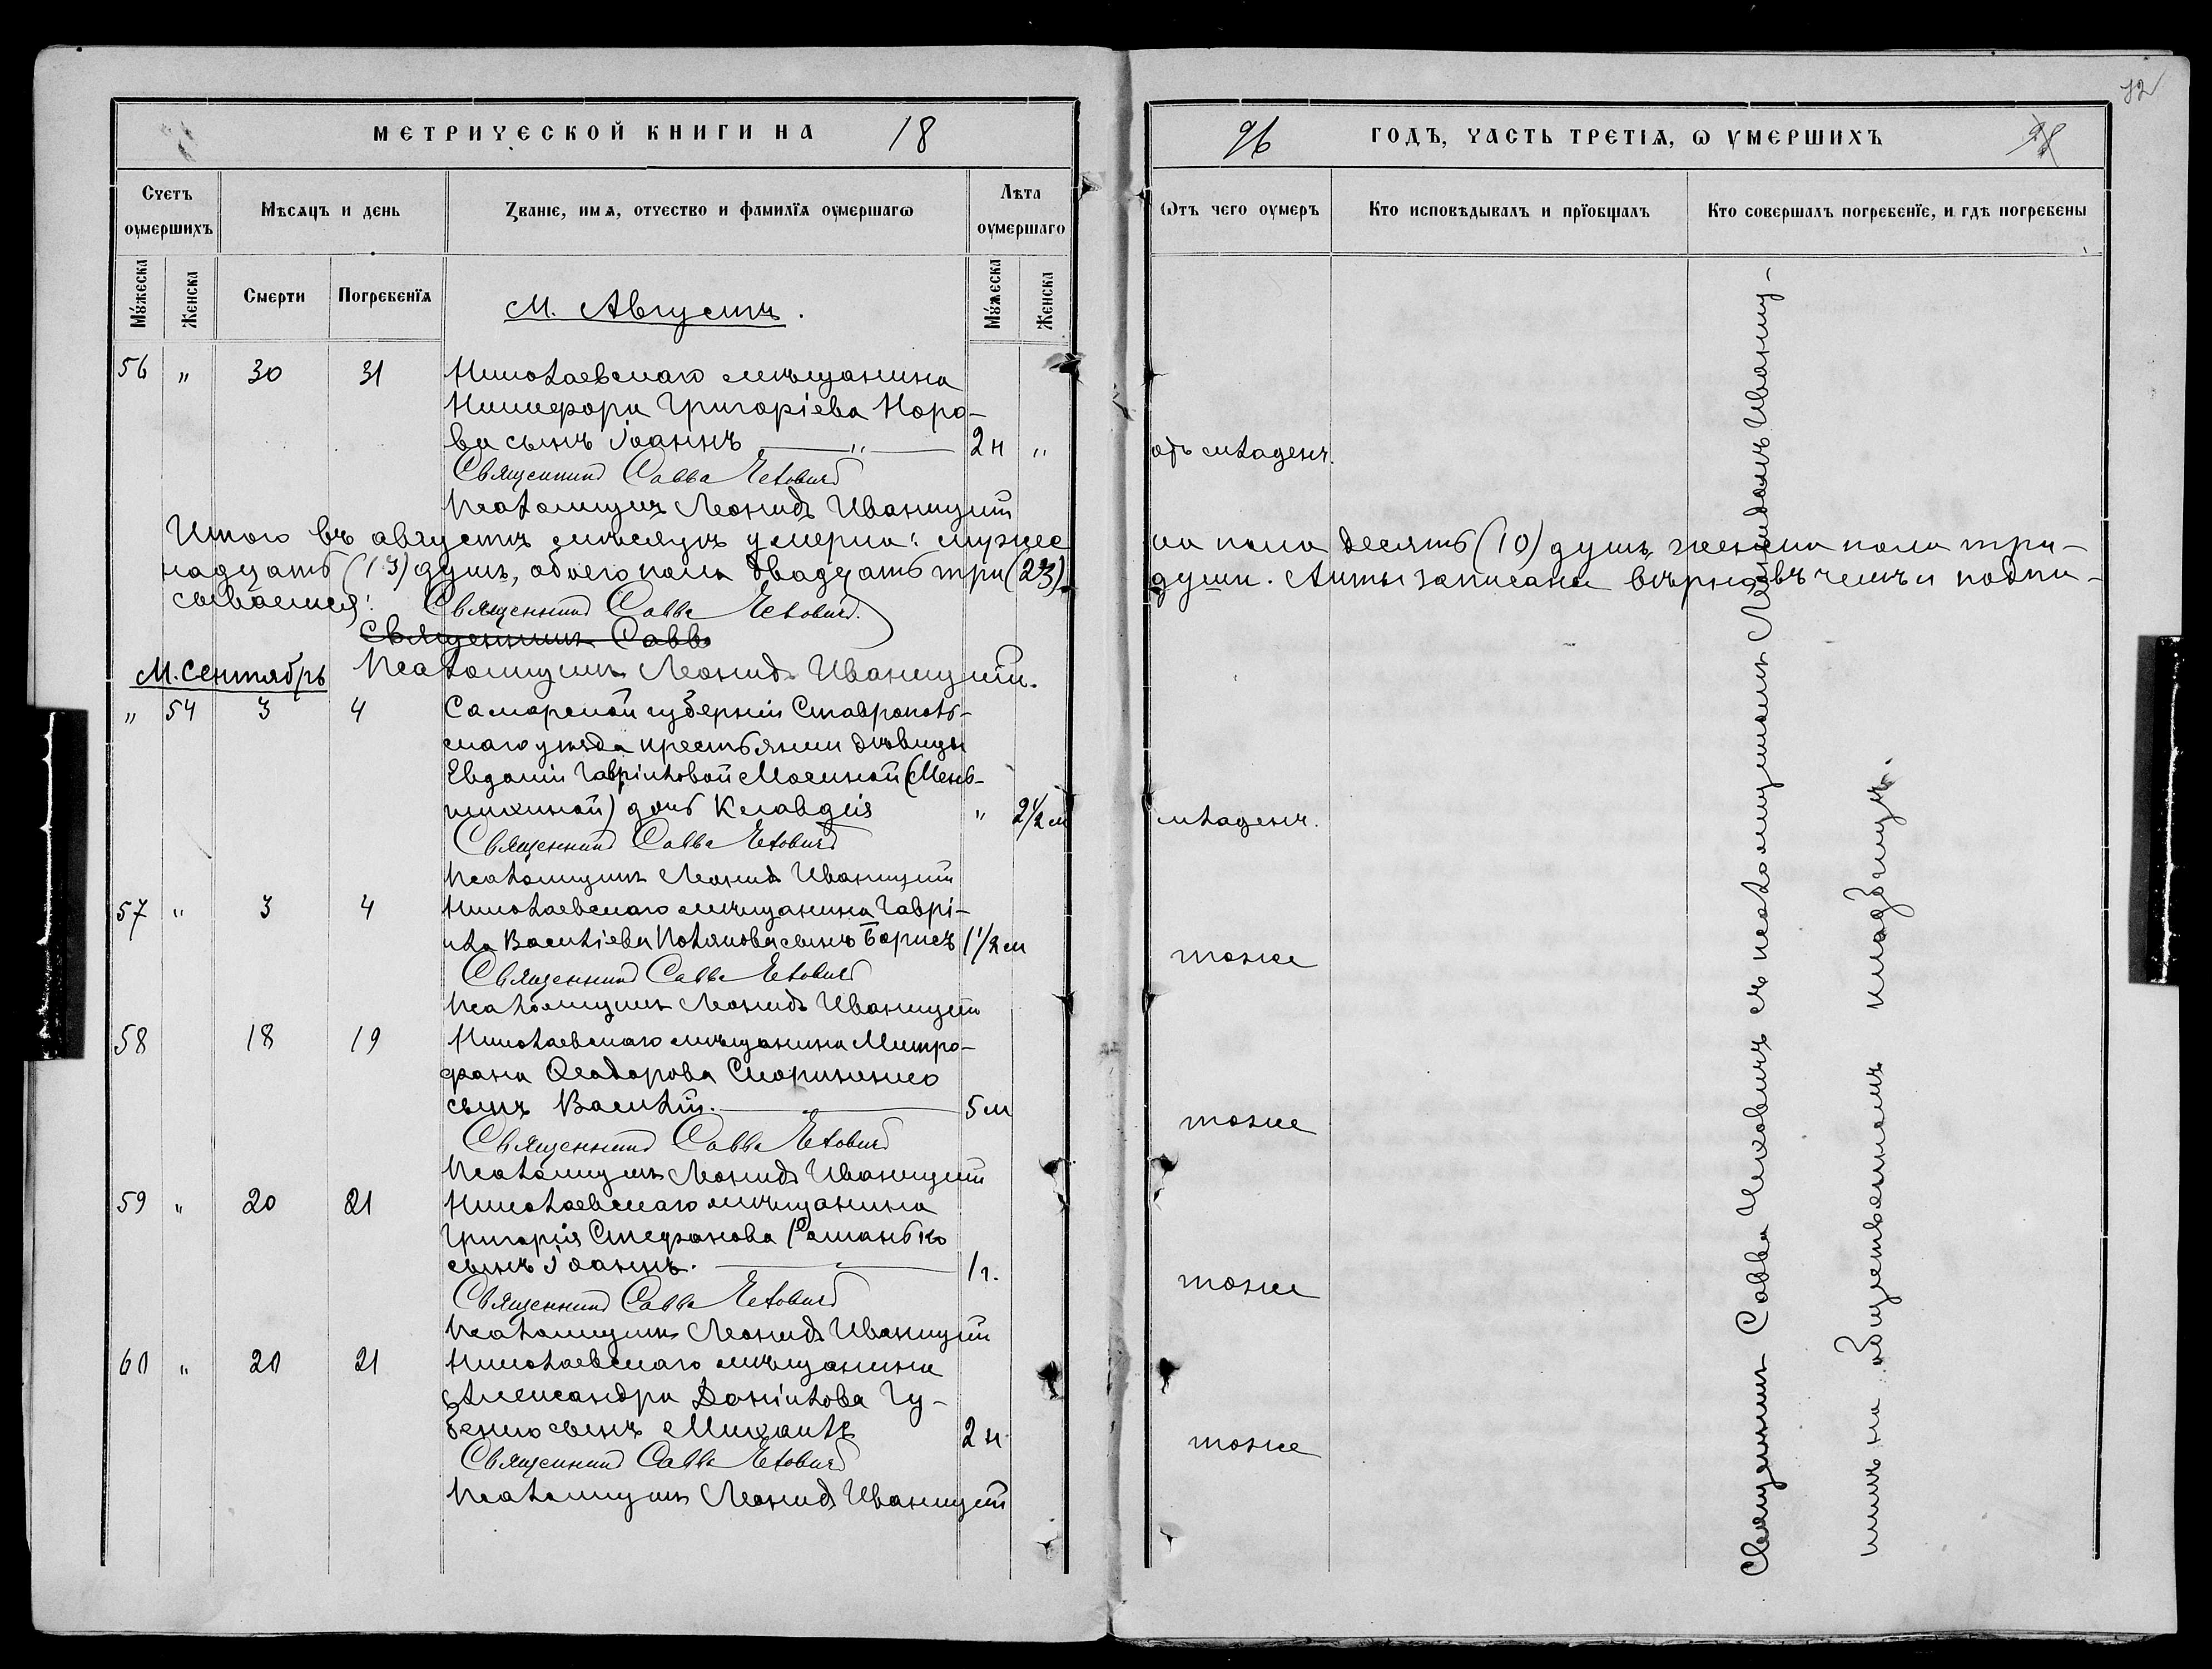 МЕТРИЧЕСКОЙ КНИГИ НА 18
96 ГОДЪ, ЧАСТЬ ТРЕТІѦ, Ѡ УМЕРШИХЪ
12
Счетъ оумершихъ
Мѣсѧцъ и день
Званіе, имѧ, отчество и фамилїѧ оумершагѡ
Лѣта оумершаго
Ѡтъ чего оумеръ
Кто исповѣдывалъ и прїобщалъ
Кто совершалъ погребенїе, и гдѣ погребены
Мꙋжеска
Женска
Смерти
Погребенїѧ
Мꙋжеска
Женска
М. Августъ.
56 " 30 31 Николаевскаго мѣщанина
Никифора Григоріева Норо-
ва сынъ Іоаннъ " 2 н " отъ младенч.
Священникъ Савва
Псаломщикъ Леонидъ Иваницкій
Итого въ августѣ мѣсяцѣ умерло: мужес
ка пола десять (10) душъ, женска пола три-
надцать (13) душъ, обоего пола двадцать три (23)
души. Акты записаны вѣрно, въ чемъ и подпи-
сываемся:
Священникъ Савва
Священникъ Савва
Псаломщикъ Леонидъ Иваницкій.
М. Сентябрь
" 54 3 4 Самарской губерніи Ставрополь-
скаго уѣзда крестьянки дѣвицы
Евдокіи Гавріиловой Мосиной (Мень-
шихиной) дочь Клавдія " 2 1/2 м младенч.
Священникъ Савва
Псаломщикъ Леонидъ Иваницкій
57 " 3 4 Николаевскаго мѣщанина Гавріи-
ла Василіева Полякова сынъ Борисъ 1 1/2 м тоже
Священникъ Савва
Псаломщикъ Леонидъ Иваницкій
58 18 19 Николаевскаго мѣщанина Митро-
фана Ѳеодорова Скориненко
сынъ Василій. 5 м тоже
Священникъ Савва
Псаломщикъ Леонидъ Иваницкій
59 " 20 21 Николаевскаго мѣщанина
Григорія Стефанова
сынъ Іоаннъ. 1 г. тоже
Священникъ Савва
Псаломщикъ Леонидъ Иваницкій
60 " 20 21 Николаевскаго мѣщанина
Александра Даніилова Гу-
бенко сынъ Михаилъ 2 н тоже
Священникъ Савва
Псаломщикъ Леонидъ Иваницкій
Священникъ Савва съ псаломщикомъ Леонидомъ Иваниц-
кимъ на общественномъ кладбищѣ.